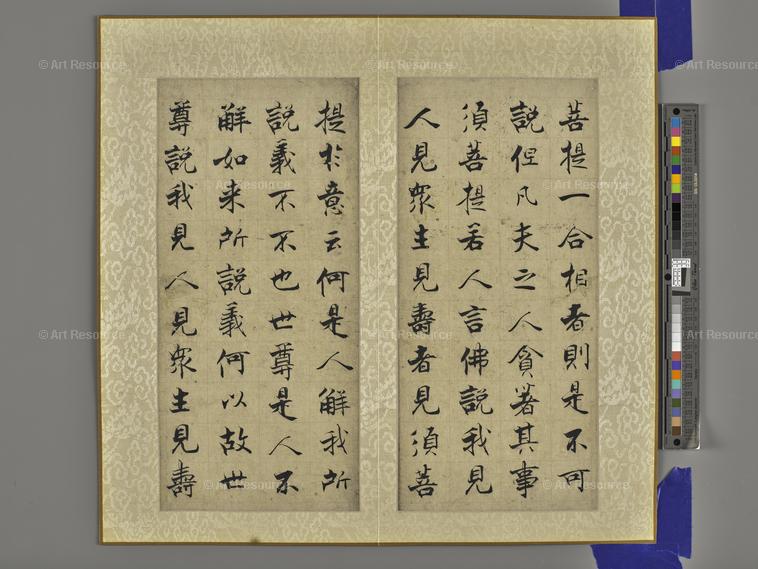 菩提一合相者則是不可
說但凡夫之人貪著其事
須菩提若人言佛說我見
人見衆生見壽者見須菩
提於意云何是人觧我所
說義不不也世尊是人不
觧如来所說義何以故世
尊說我見人見衆生見壽
© Art Resource
© Art Resource
© Art Resource
© Art Resource
© Art Resource
© Art Resource
© Art Resource
© Art Resource
© Art Resource
© Art Resource